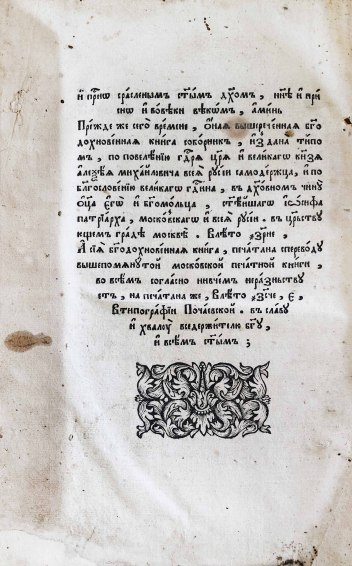 и҆ прⷭ҇но сра́сленымъ ст҃ы́мъ дх҃омъ , нн҃ѣ и҆ при
снѡ и҆ вовѣ́ки вѣкѡ́мъ , а҆ми́нь
Пре́жде же сегѡ̀ вре́мени , ѻ҆́ная вышерече́нная бг҃о
дохнове́нная кни́га собо́рникъ , и҆́здана ти́по
мъ , по повелѣ́нїю гдⷭ҇ря цр҃я̀ и҆ вели́кагѡ кн҃зя
а҆леѯѣ́я миха́йловича всея̀ руси́и самоде́ржца , и҆ по
блгⷭ҇ослове́нїю вели́кагѡ гдⷭ҇ина , въ дх҃о́вномъ чи́ну
ѻ҆ц҃а̀ є҆гѡ̀ и҆ бг҃омо́льца , ст҃ѣ́йшагѡ і҆ѡ́сифа
патрїа́рха , моско́вскагѡ и҆ всея̀ руси́и , въ црⷭ҇тву
ющемъ гра́дѣ москвѣ̀ . Влѣ́то ҂зрн҃е ,
А҆ сїя̀ бг҃одохнове́нная кни́га , печа́тана спереводу
вышепомяну́той моско́вской печа́тной кни́ги ,
во всѐмъ согла́сно ничѐмъ нера́зньству
етъ , на печа́тана же , Влѣ́то ҂зс҃че , є҃ ,
Втипогра́фїи Поча́евской . въ сла́ву
и҆ хвалоу̀ вседержи́телю бг҃у ,
и҆ всѣ́мъ ст҃ы́мъ ;